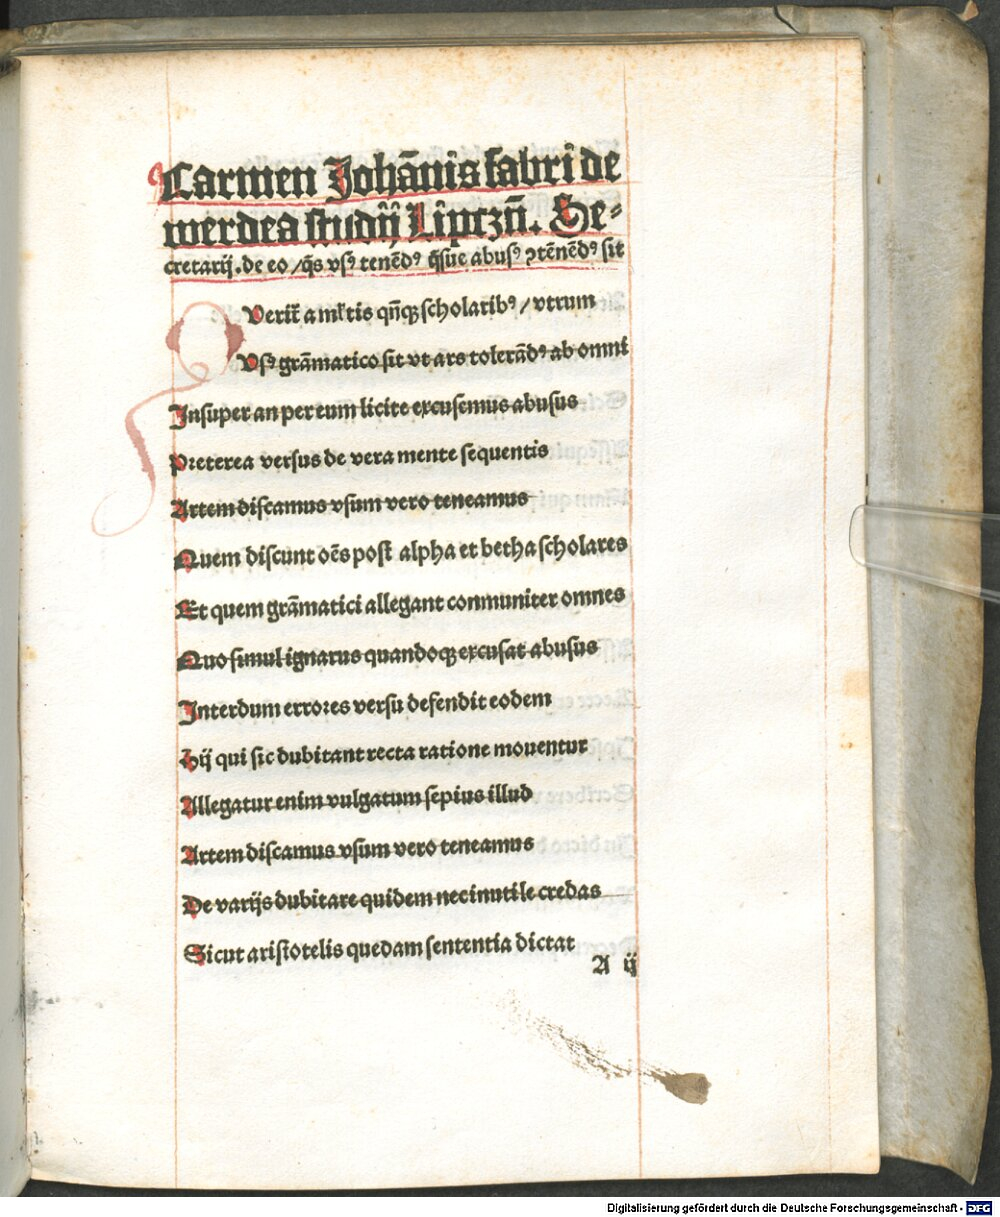 Carmen Johānis fabri de
werdea studij Liptzñ. Se⸗
cretarij. de eo/q̄s vsꝰ tenēdꝰ q̄sue abusꝰ ↄtēnēdꝰ sit
Querit̃ a ml̃tis qñqꝫ scholaribꝰ/vtrum
Vsꝰ grāmatico sit vt ars tolerādꝰ ab omni
Insuper an per eum licite excusemus abusus
Preterea versus de vera mente sequentis
Artem discamus vsum vero teneamus
Quem discunt oēs post alpha et betha scholares
Et quem grāmatici allegant communiter omnes
Quo simul ignarus quandoqꝫ excusat abusus
Interdum errores versu defendit eodem
Hij qui sic dubitant recta ratione mouentur
Allegatur enim vulgatum sepius illud
Artem discamus vsum vero teneamus
De varijs dubitare quidem nec inutile credas
Sicut aristotelis quedam sententia dictat
A ij
Digitalisierung gefördert durch die Deutsche Forschungsgemeinschaft - DFG